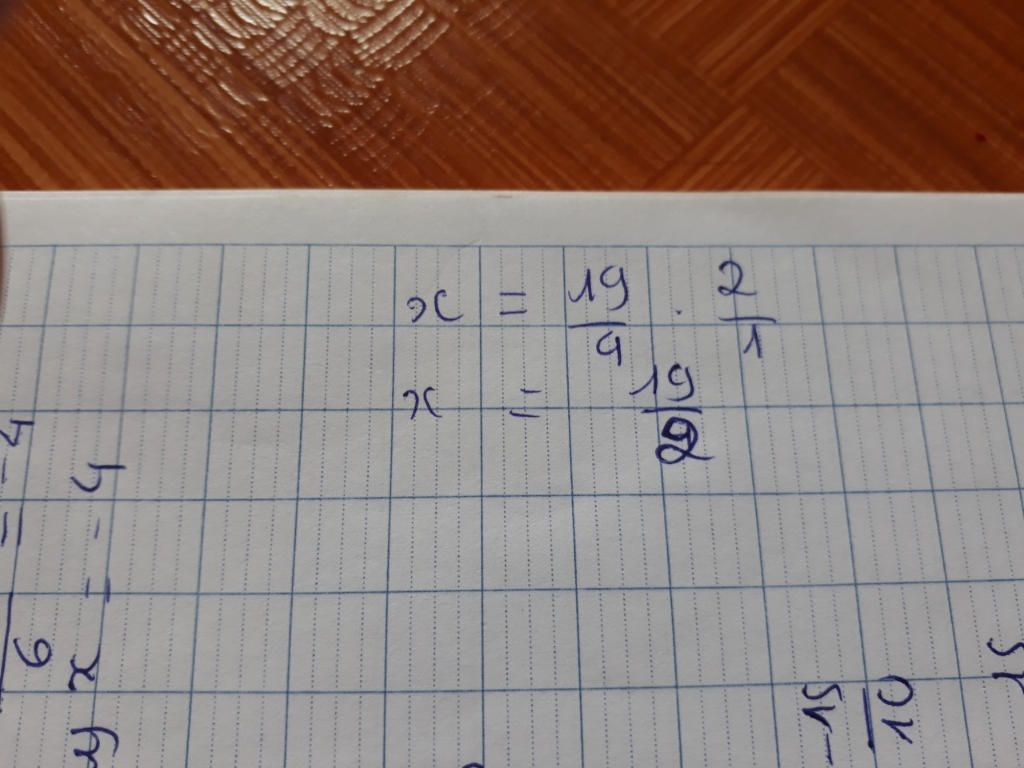 x = 19/4 . 2/1
x = 19/2
= -4
6
x = -4
-15/10